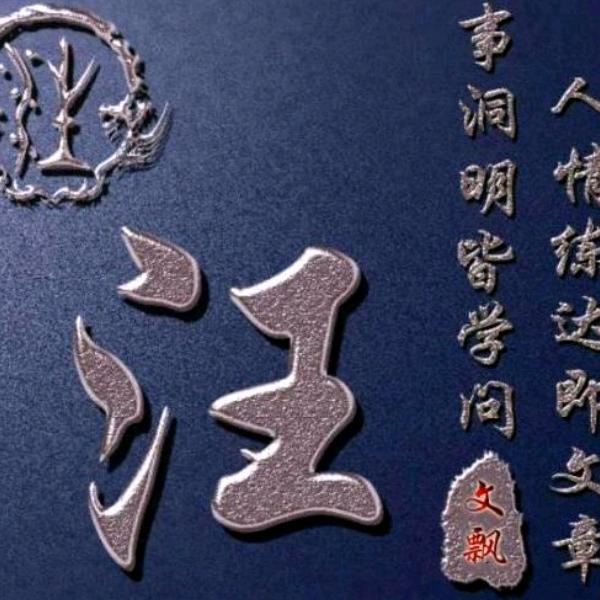 汪
事洞明皆学问
人情练达即文章
文飘